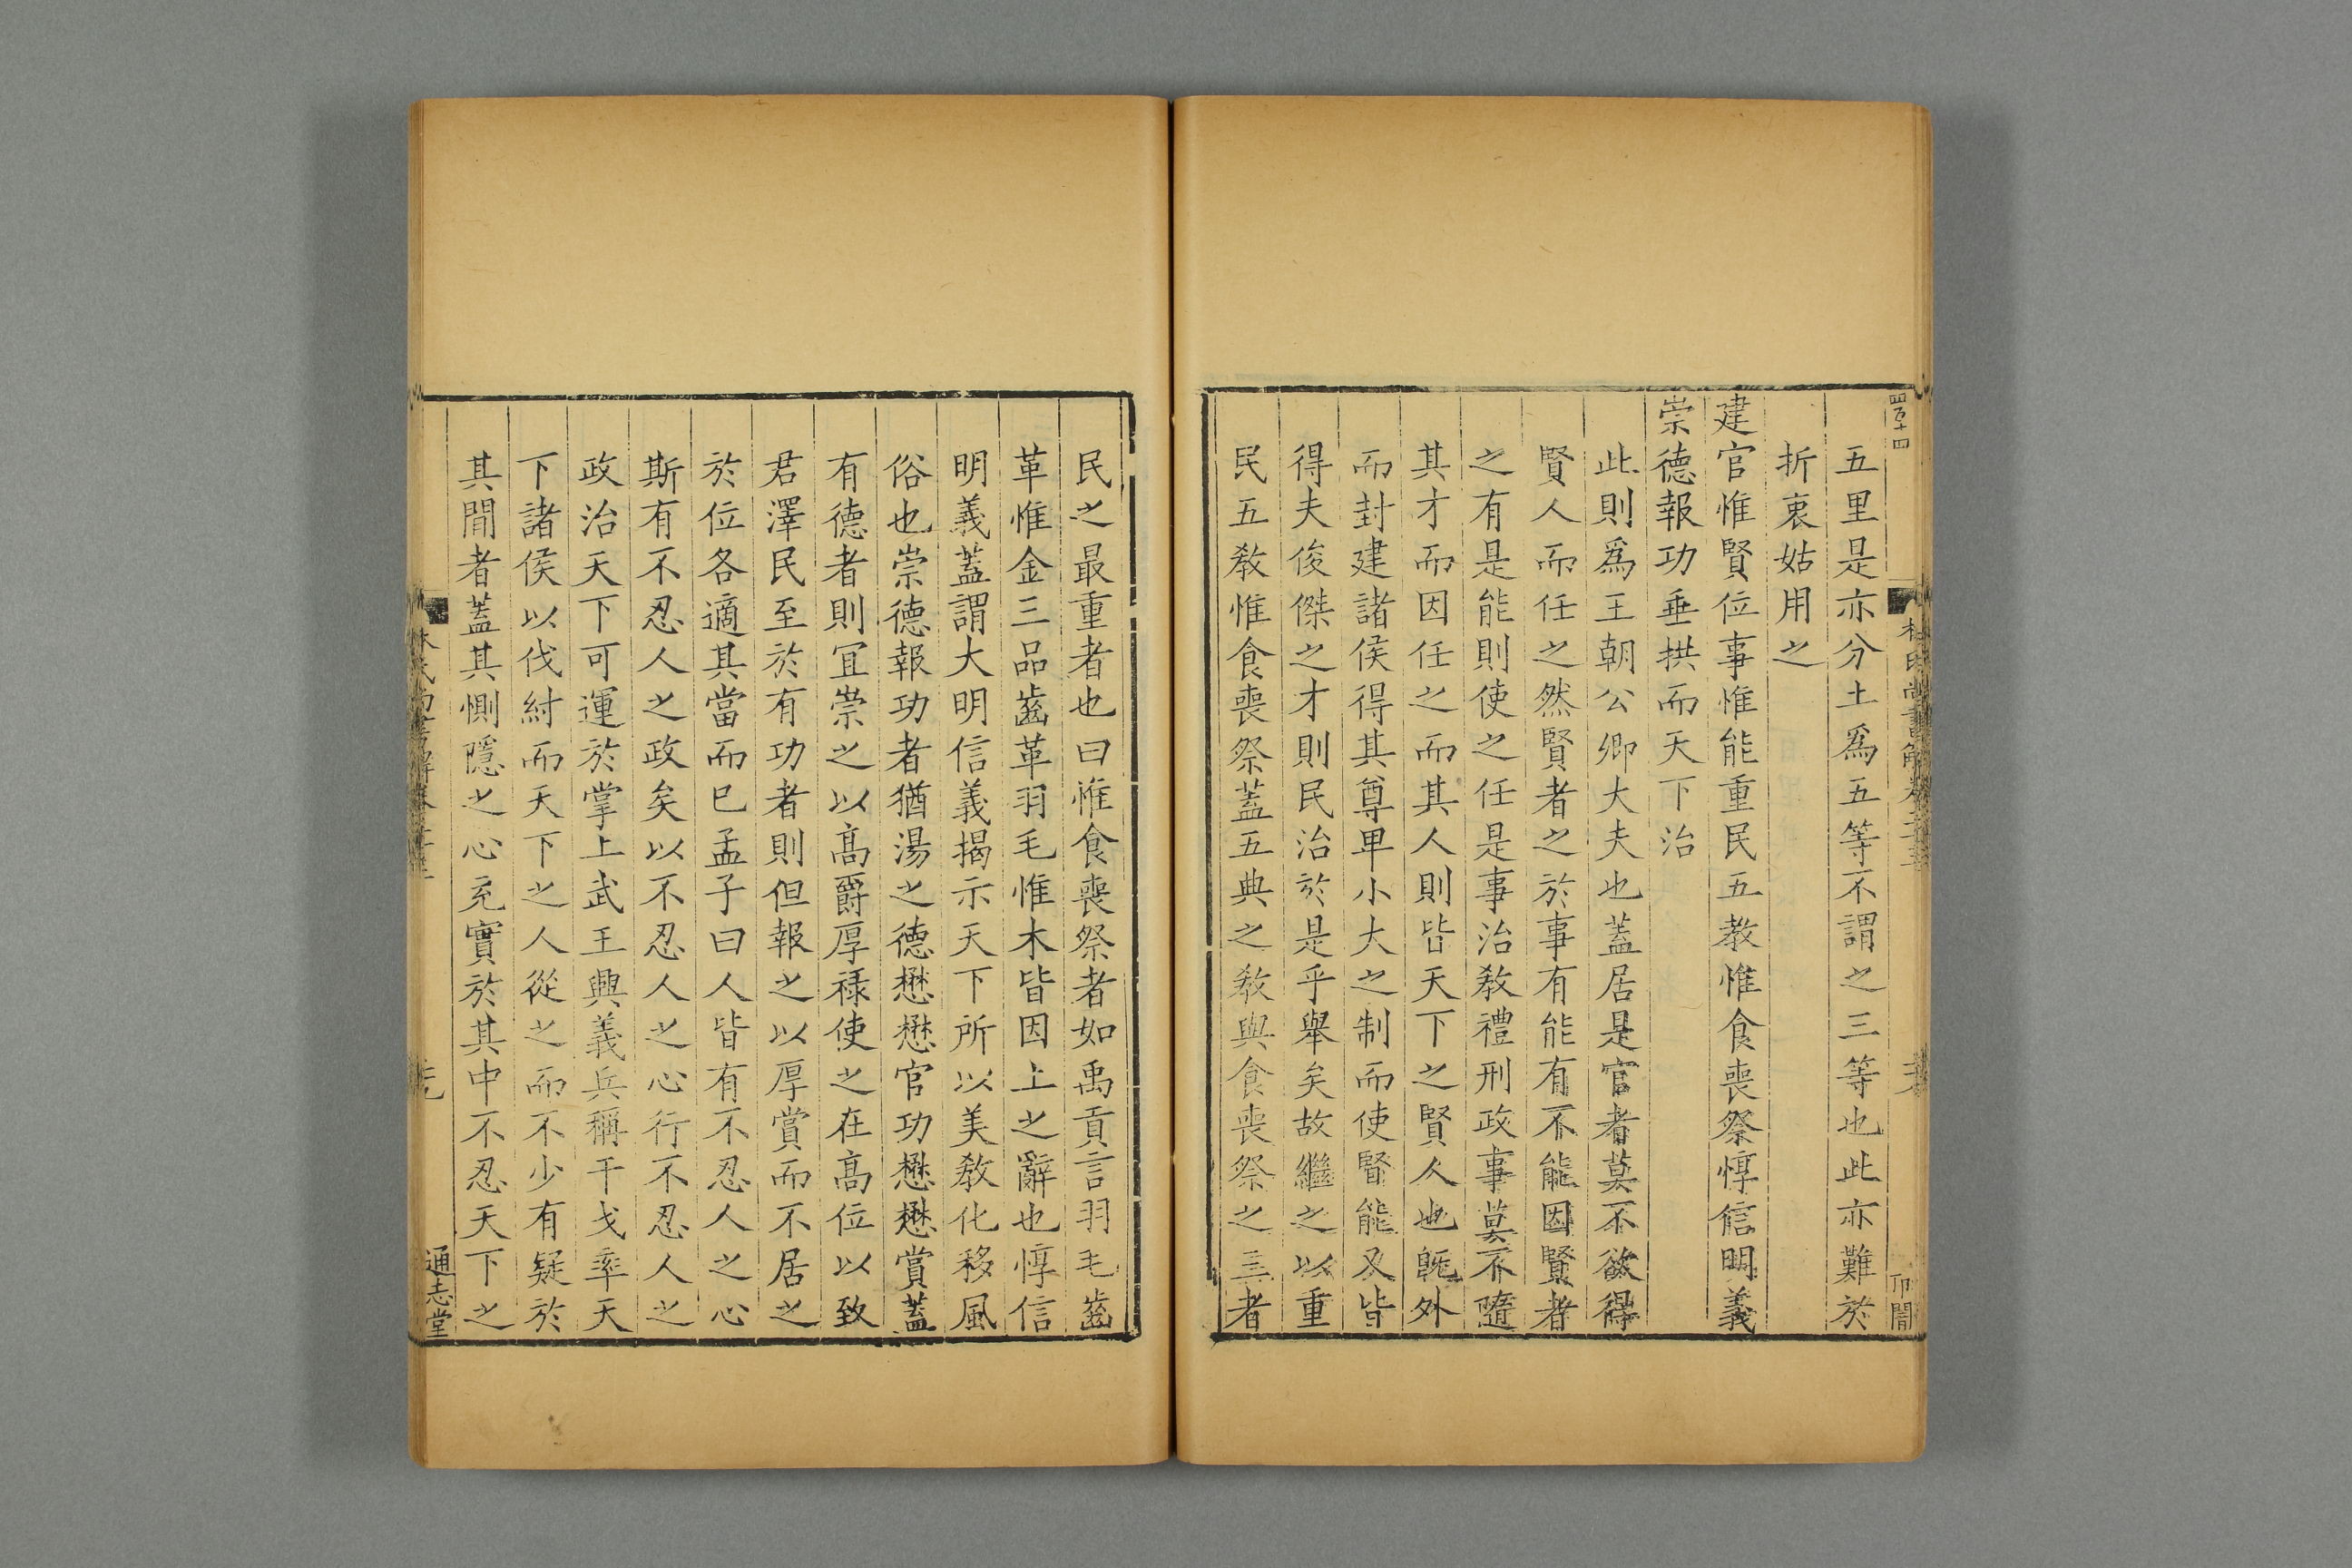 五里是亦分土爲五等不謂之三等也此亦難於
折衷姑用之
建官惟賢位事惟能重民五教惟食喪祭惇信明義
崇德報功垂拱而天下治
此則爲王朝公卿大夫也蓋居是官者莫不欲得
賢人而任之然賢者之於事有能有不能因賢者
之有是能則使之任是事治教禮刑政事莫不隨
其才而因任之而其人則皆天下之賢人也旣外
而封建諸侯得其尊卑小大之制而使賢能又皆
得夫俊傑之才則民治於是乎舉矣故繼之以重
民五教惟食喪祭蓋五典之教與食喪祭之三者
民之最重者也曰惟食喪祭者如禹貢言羽毛齒
革惟金三品齒革羽毛惟木皆因上之辭也惇信
明義蓋謂大明信義揭示天下所以美教化移風
俗也崇德報功者猶湯之德懋懋官功懋懋賞蓋
有德者則冝崇之以高爵厚祿使之在高位以致
君澤民至於有功者則但報之以厚賞而不居之
於位各適其當而已孟子曰人皆有不忍人之心
斯有不忍人之政矣以不忍人之心行不忍人之
政治天下可運於掌上武王興義兵稱干戈率天
下諸侯以伐紂而天下之人從之而不少有疑於
其閒者蓋其惻隱之心充實於其中不忍天下之
通志堂